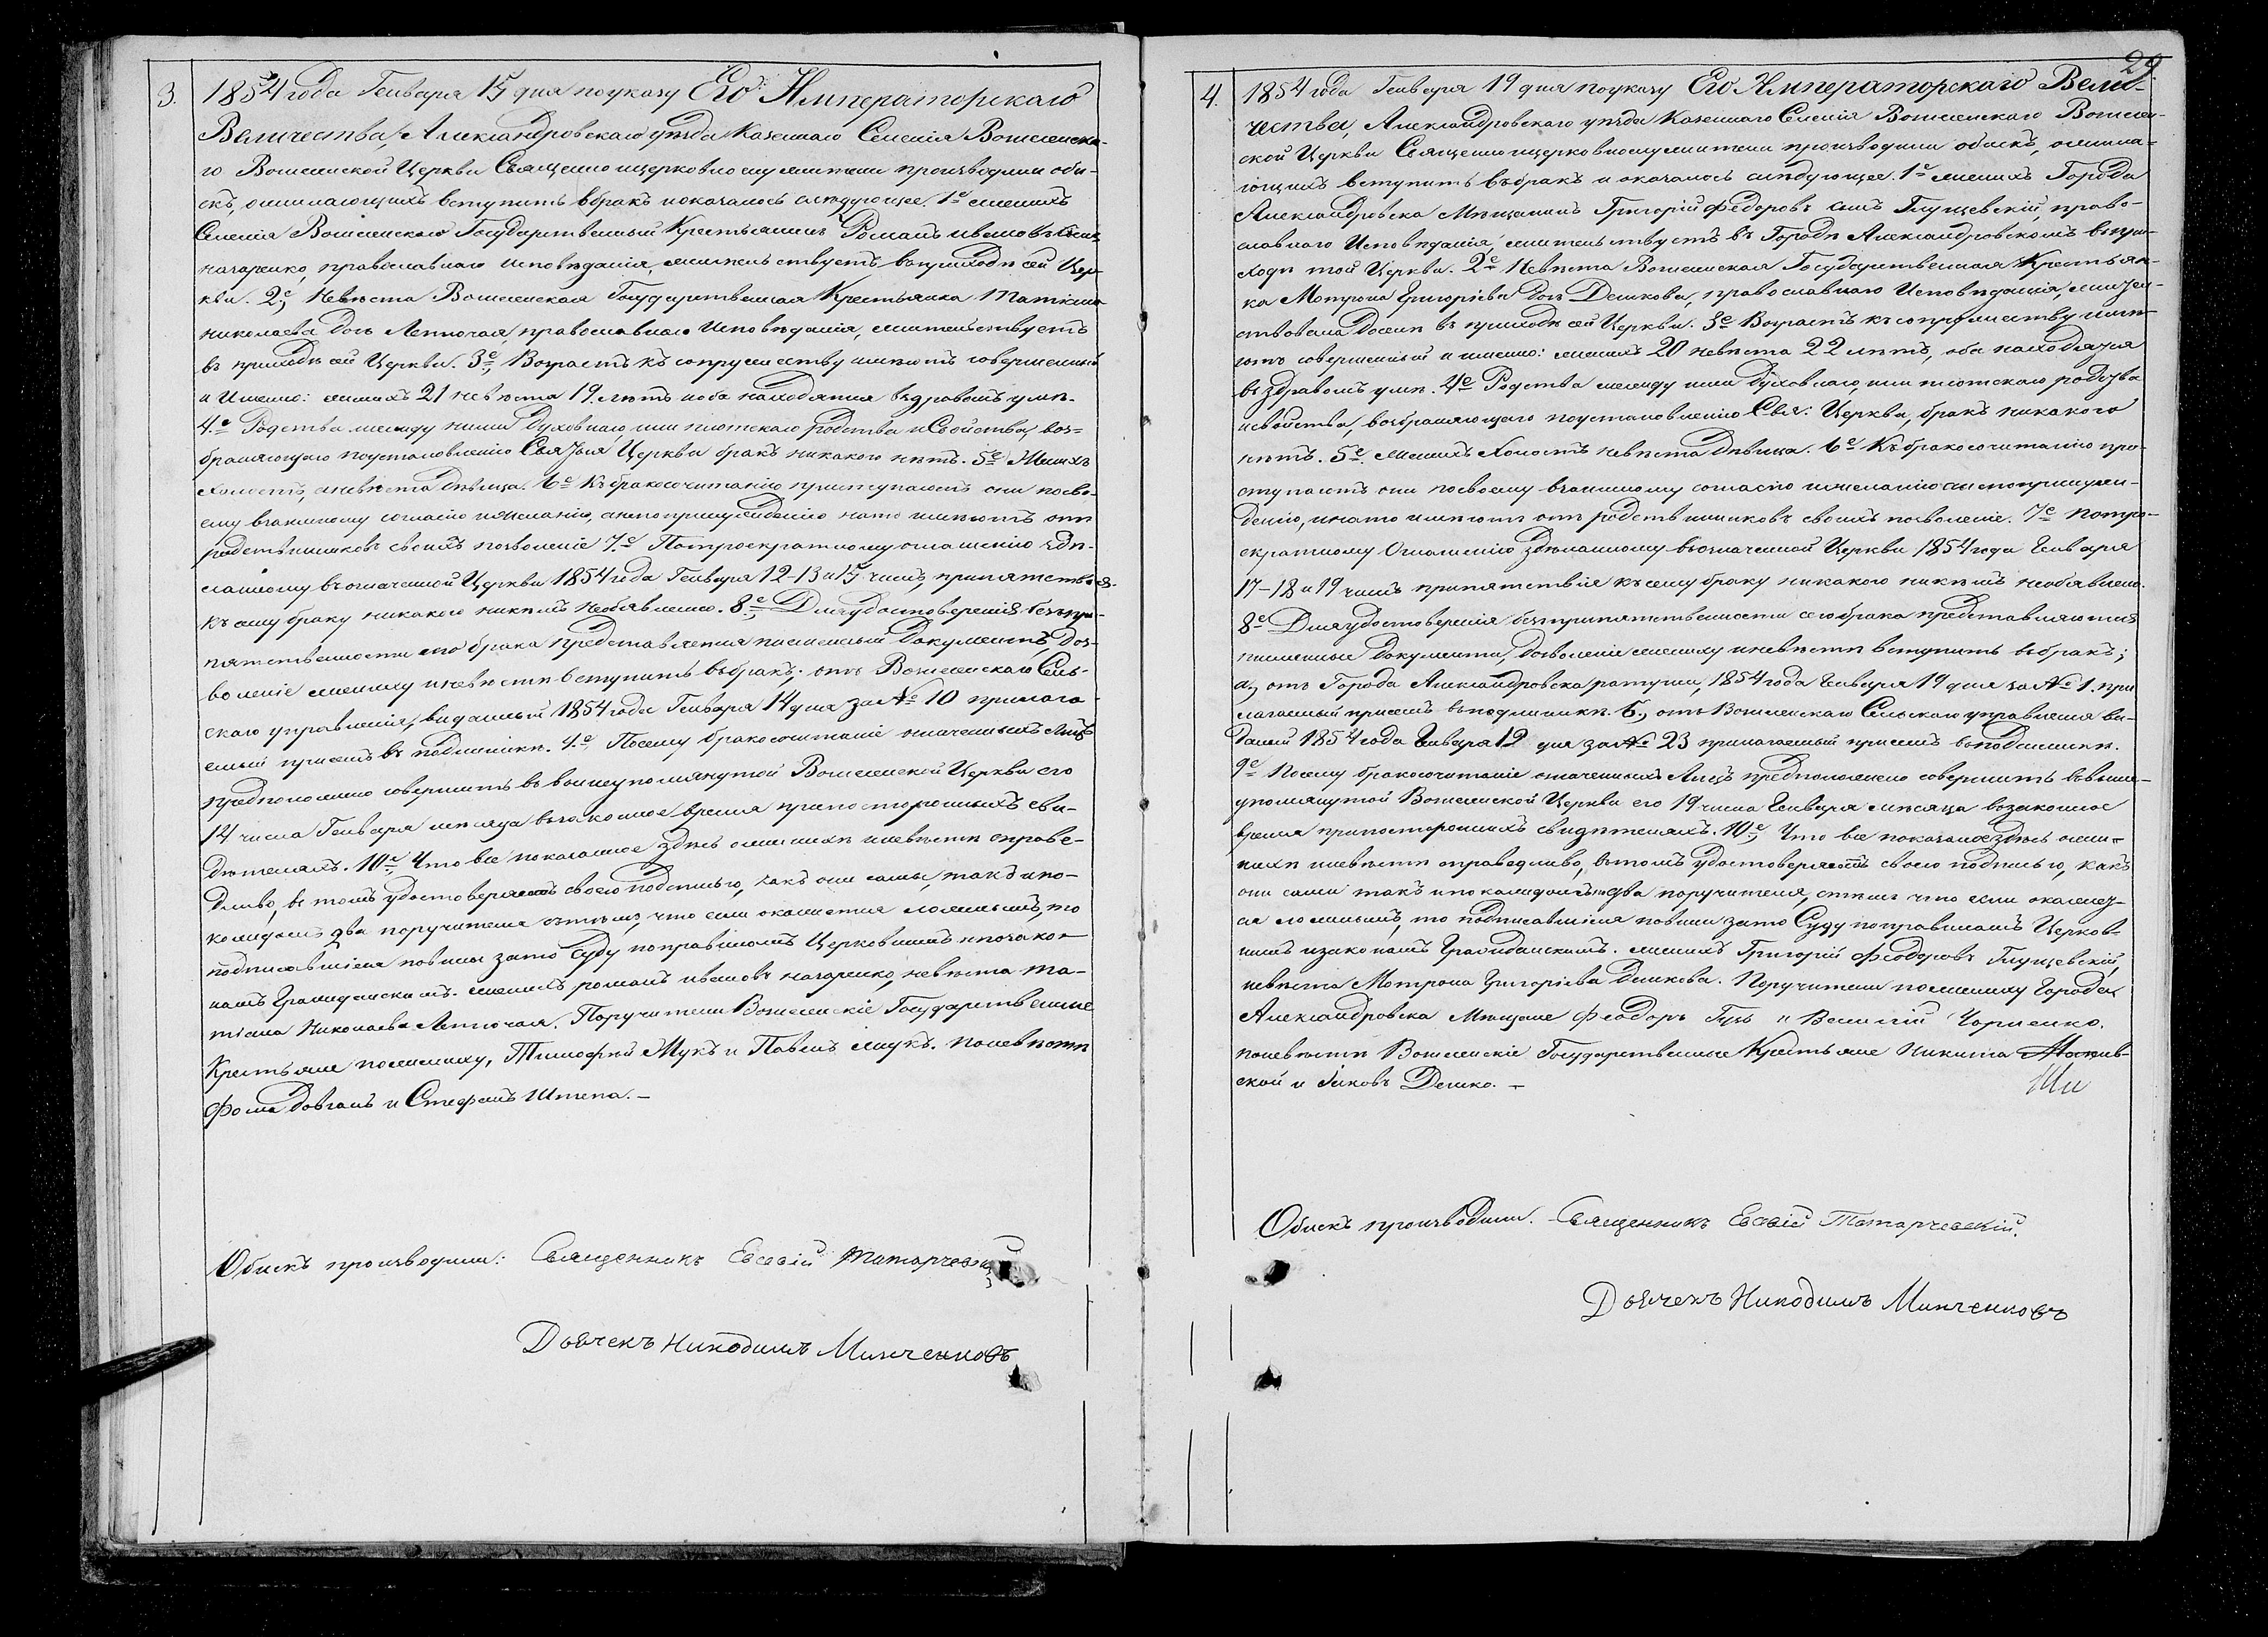 3.
1854 года Генваря 15 дня по указу Его Императорскаго
Величества, Александровскаго уѣзда Казеннаго Селенія Вознесенска-
го Вознесенской Церкви Священно и церковнослужители производили обы-
скъ, о желающихъ вступить в бракъ и оказалось слѣдующее. 1е женихъ
Селенія Вознесенскаго Государственный Крестьянинъ Романъ ивановъ сынъ
назаренко, православнаго исповѣданія, жительствуетъ в приходѣ сей Цер-
кви. 2е, Невѣста Вознесенская Государственная Крестьянка Татіана
николаева дочь Лепточая, православнаго Исповѣданія, жительствуетъ
въ приходѣ сей Церкви. 3е, Возрастъ къ сопружеству имѣютъ совершенный
и Именно: женихъ 21 невѣста 19 лѣтъ и оба находятся въ здравомъ умѣ.
4.е Родства между ними Духовнаго или плотскаго родства и Свойства, воз-
браняющаго по установленію Святыя Церкви бракъ никакого нѣтъ. 5е, Женихъ
холостъ, а невѣста дѣвица. 6е Къ бракосочитанію приступаютъ они по сво-
ему взаимному согласію и желанію, а не по принужденію на то имѣютъ отъ
родственниковъ своихъ позволеніе 7.е По троекратному оглашенію здѣ-
ланному въ означенной Церкви 1854 года Генваря 12-13 и 15 числъ, припятствія
къ сему браку никакого никѣмъ необъявлено. 8.е, Для удостоверенія безпри-
пятственности сего брака представляется письменный документъ, доз-
воленіе жениху и невѣстѣ вступить въ бракъ; отъ Вознесенскаго Сель-
скаго управленія, виданный 1854 года Генваря 14 дня за № 10 прилага-
емый присемъ въ подлинникѣ. 9.е, Посему бракосочитаніе означенныхъ Лицъ
предположено совершить въ вышеупомянутой Вознесенской Церкви сего
14 числа Генваря мѣсяца въ законное время при постороннихъ сви-
дѣтеляхъ. 10.е, Что все показанное здѣсь о женихѣ и невѣстѣ справе-
дливо, въ томъ удостоверяютъ своею подписью, какъ они сами, такъ и по
каждомъ два поручителя с тѣмъ, что если окажется ложнымъ, то
подписавшіеся повины за то Суду по правиламъ Церковнимъ и по зако-
намъ Гражданскимъ. женихъ романъ ивановъ назаренко, невѣста та-
тіана Николаева Лепточая. Поручители Вознесенскіе Государственные
Крестьяне по жениху, Тимофей Жукъ и Павелъ жукъ. по невѣстѣ
фома Довгань и Стефанъ Штепа.-
Обыскъ производили: Священникъ Евсевій Татарчевскій
Дьячекъ Никодимъ Минченковъ
29.
4.
1854 года Генваря 19 дня по указу Его Императорскаго Вели-
чества, Александровскаго уѣзда Казеннаго Селенія Вознесенскаго Вознесен-
ской Церкви Священно и церковнослужители производили обыскъ, о жела-
ющихъ вступить въ бракъ и оказалось слѣдующее. 1е женихъ Города
Александровска Мѣщанинъ Григорій федоровъ сынъ Глущевскій, право-
славнаго Исповѣданія, жительствуетъ въ Городѣ Александровскомъ в при-
ходѣ той Церкви. 2е Невѣста Вознесенская Государственная Крестьян-
ка Мотрона Григоріева дочь Дешкова, православнаго Исповѣданія, жител-
ствовала Доселѣ въ приходѣ сей Церкви. 3е Возрастъ къ сопружеству имѣ-
ютъ совершенный и именно: женихъ 20 невѣста 22 лѣтъ, оба находятся
въ здравомъ умѣ. 4е Родства между ими духовнаго, или плотскаго родства
и свойства, возбраняющаго по установленію Свя: Церкви, бракъ никакого
нѣтъ. 5е, женихъ Холостъ невѣста Дѣвица. 6е Къ бракосочитанію при-
ступаютъ они по своему взаимному согласію и желанію а не по принуж-
денію, и на то имѣютъ отъ родственниковъ своихъ позволеніе. 7е По тро-
екратному Оглашенію здѣланному въ означенной Церкви 1854 года Генваря
17-18 и 19 числъ припятствія къ сему браку никакого никѣмъ необявлено.
8е Для удостоверенія безприпятственности сего брака представляются
письменные документы, дозволеніе жениху и невѣстѣ вступить въ бракъ;
а., отъ Города Александровска ратуши, 1854 года Генваря 19 дня за № 1. при-
лагаемый присемъ въ подлинникѣ. б., отъ Вознесенскаго Сельскаго управления ви-
даный 1854 года Генваря 12 дня за № 23 прилагаемый присемъ в подлинникѣ.
9е Посему бракосочитаніе означенныхъ Лицъ предположено совершить въ выше-
упомянутой Вознесенской Церкви сего 19 числа Генваря мѣсяца в законное
время при постороннихъ свидѣтеляхъ. 10.е, Что все показаное здѣсь о же-
нихѣ и невѣстѣ справедливо, въ томъ удостоверяютъ своею подписью, какъ
они сами такъ и по каждомъ по два поручителя, стѣмъ что если окажет-
ся ложнымъ, то подписавшіеся повины за то Суду по правиламъ Церков-
нимъ и законамъ Гражданскимъ. женихъ Григорій Феодоровъ Глущевскій,
невѣста Мотрона Григоріева дешкова. Поручители по жениху Города
Александровска Мѣщане Феодоръ Гузь и Василій Чорненко.
по невѣстѣ Вознесенскіе Государственные Крестьяне Никита
ской и Яковъ Дешко. -
Обыскъ производили. Священникъ Евсевій Татарчевскій.
Дьячекъ Никодимъ Минченковъ